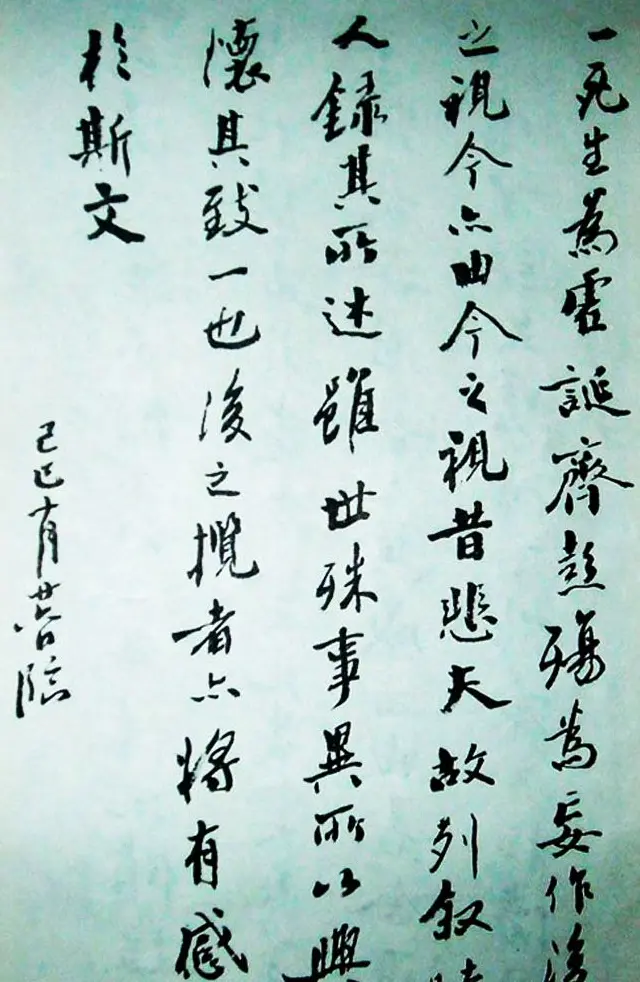 一死生為虛誕齊彭殤為妄作後
之視今亦由今之視昔悲夫故列叙時
人錄其所述雖世殊事異所以興
懷其致一也後之攬者亦將有感
於斯文
己巳十月廿六日臨